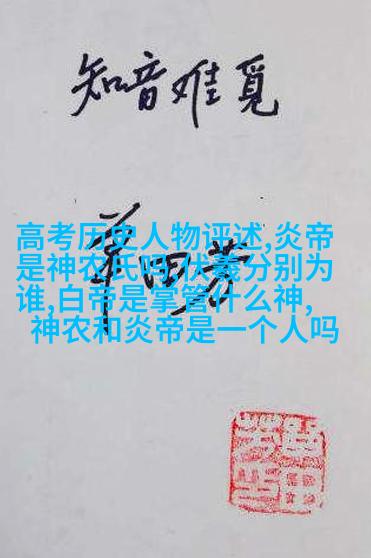 知音难觅
高考历史人物评述,炎帝
是神农氏吗,伏羲分别为
谁,白帝是掌管什么神,
神农和炎帝是一个人吗
单田芳